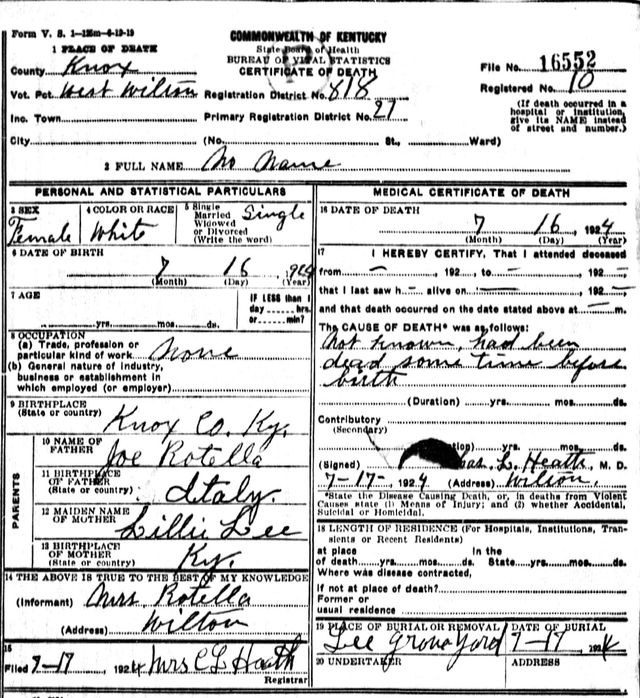 Form V. S. 1—125m—6-19-19
COMMONWEALTH OF KENTUCKY
State Board of Health
BUREAU OF VITAL STATISTICS
CERTIFICATE OF DEATH
1 PLACE OF DEATH
County Knox
File No. 16552
Vot. Pct. West Wilton Registration District No. 818
Registered No. 10
Inc. Town Primary Registration District No. 27
(If death occurred in a hospital or institution, give its NAME instead of street and number.)
City (No. St., Ward)
2 FULL NAME No Name
PERSONAL AND STATISTICAL PARTICULARS
3 SEX Female
4 COLOR OR RACE White
5 Single Married Widowed or Divorced (Write the word) Single
6 DATE OF BIRTH
7 16 1924
(Month) (Day) (Year)
7 AGE
yrs. mos. ds.
IF LESS than 1 day hrs. or min?
8 OCCUPATION
(a) Trade, profession or particular kind of work None
(b) General nature of industry, business or establishment in which employed (or employer)
9 BIRTHPLACE
(State or country) Knox Co. Ky.
PARENTS
10 NAME OF FATHER Joe Rotella
11 BIRTHPLACE OF FATHER (State or country) Italy.
12 MAIDEN NAME OF MOTHER Lillie Lee
13 BIRTHPLACE OF MOTHER (State or country) Ky.
14 THE ABOVE IS TRUE TO THE BEST OF MY KNOWLEDGE
(Informant) Mrs Rotella
(Address) Wilton
15
Filed 7-17 1924 Mrs C L Heath
Registrar
MEDICAL CERTIFICATE OF DEATH
16 DATE OF DEATH
7 16, 1924
(Month) (Day) (Year)
17 I HEREBY CERTIFY, That I attended deceased
from — , 192 — , to — , 192 —
that I last saw h — alive on — , 192 —
and that death occurred on the date stated above at — m.
The CAUSE OF DEATH* was as follows:
Not known had been
dead some time before
birth
(Duration) yrs. mos. ds.
Contributory
(Secondary)
yrs. mos. ds.
(Signed) L. Heath, M. D.
7-17- 1924 (Address) Wilton.
*State the Disease Causing Death, or, in deaths from Violent
Causes state (1) Means of Injury; and (2) whether Accidental,
Suicidal or Homicidal.
18 LENGTH OF RESIDENCE (For Hospitals, Institutions, Transients or Recent Residents)
at place In the
of death yrs. mos. ds. State yrs. mos. ds.
Where was disease contracted,
If not at place of death?
Former or
usual residence
19 PLACE OF BURIAL OR REMOVAL Lee Grave Yard
DATE OF BURIAL 7-17 1924
20 UNDERTAKER ADDRESS